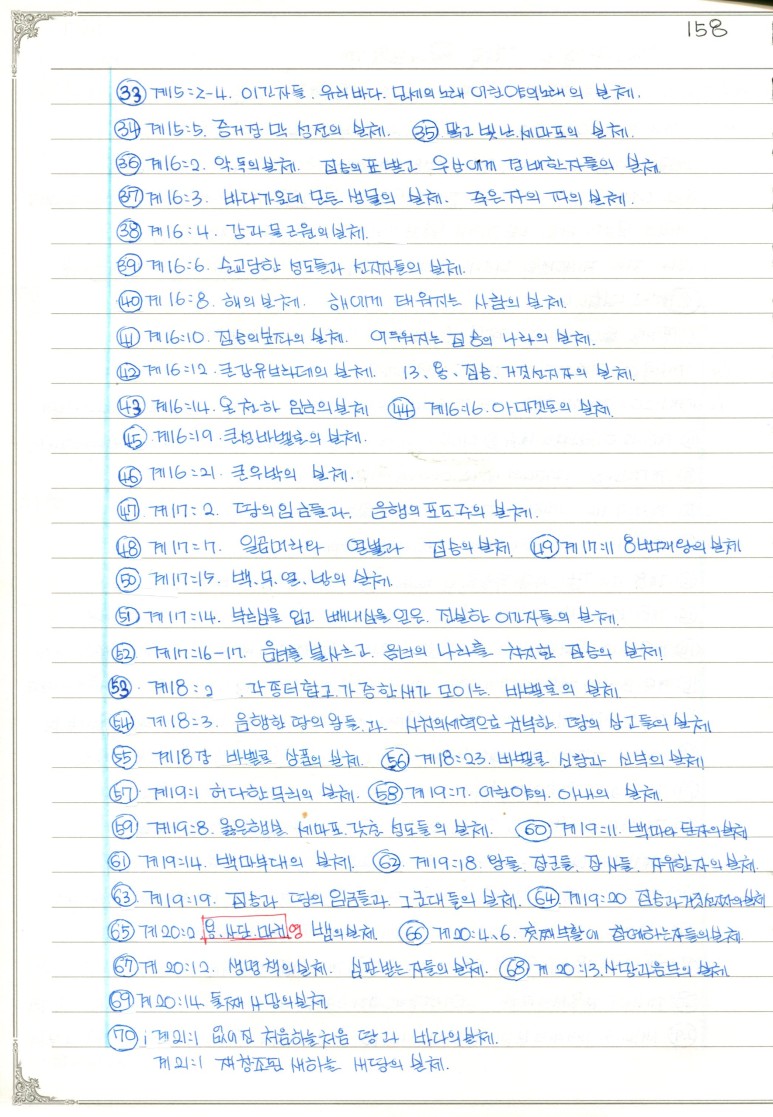 158
㉝ 계15:2-4. 이긴자들. 유리바다. 모세의노래 어린양의노래의 실체.
㉞ 계15:5. 증거장막 성전의 실체. ㉟ 맑고빛난세마포의 실체.
㊱ 계16:2. 악.독의실체. 짐승의표받고 우상에게 경배한자들의 실체
㊲ 계16:3. 바다가운데 모든 생물의 실체. 죽은자의 피의 실체.
㊳ 계16:4. 강과물근원의실체.
㊴ 계16:6. 순교당한 성도들과 선지자들의 실체.
㊵ 계16:8. 해의실체. 해에게 태워지는 사람의 실체.
㊶ 계16:10. 짐승의보좌의 실체. 어두워지는 짐승의 나라의 실체.
㊷ 계16:12. 큰강유브라데의 실체. 13. 용. 짐승. 거짓선지자의 실체.
㊸ 계16:14. 온천하 임금의실체 ㊹ 계16:16. 아마겟돈의 실체.
㊺ 계16:19. 큰성바벨론의 실체.
㊻ 계16:21. 큰우박의 실체.
㊼ 계17:2. 땅의임금들과. 음행의포도주의 실체.
㊽ 계17:7. 일곱머리와 열뿔과 짐승의실체. ㊾ 계17:11 8번째왕의 실체
㊿ 계17:15. 백.무.열.방의 실체.
51 계17:14. 부르심을 입고 빼내심을 얻은. 진실한 이긴자들의 실체.
52 계17:16-17. 음녀를 불사르고. 음녀의 나라를 차지한 짐승의 실체!
53 계18:2 각종더럽고.가증한새가 모이는. 바벨론의 실체
54 계18:3. 음행한 땅의왕들.과. 사치의세력으로 치부한. 땅의 상고들의 실체
55 계18장 바벨론 상품의 실체. 56 계18:23. 바벨론 신랑과 신부의 실체
57 계19:1 허다한무리의 실체. 58 계19:7. 어린양의. 아내의 실체.
59 계19:8. 옳은행실. 세마포. 갖춘 성도들의 실체. 60 계19:11. 백마와 탄자의실체
61 계19:14. 백마부대의 실체. 62 계19:18. 왕들. 장군들. 장사들. 자유한자의실체.
63 계19:19. 짐승과 땅의임금들과. 그군대들의 실체. 64 계19:20 짐승과거짓선지자의실체
65 계20:2 용.사단.마귀영 뱀의실체. 66 계20:4.6. 첫째부활에 참예하는자들의실체.
67 계20:12. 생명책의실체. 심판받는 자들의 실체. 68 계20:13.사망과음부의 실체
69 계20:14. 둘째 사망의실체
70 계21:1 없어진 처음하늘처음 땅과 바다의실체.
계21:1 재창조된 새하늘 새땅의 실체.